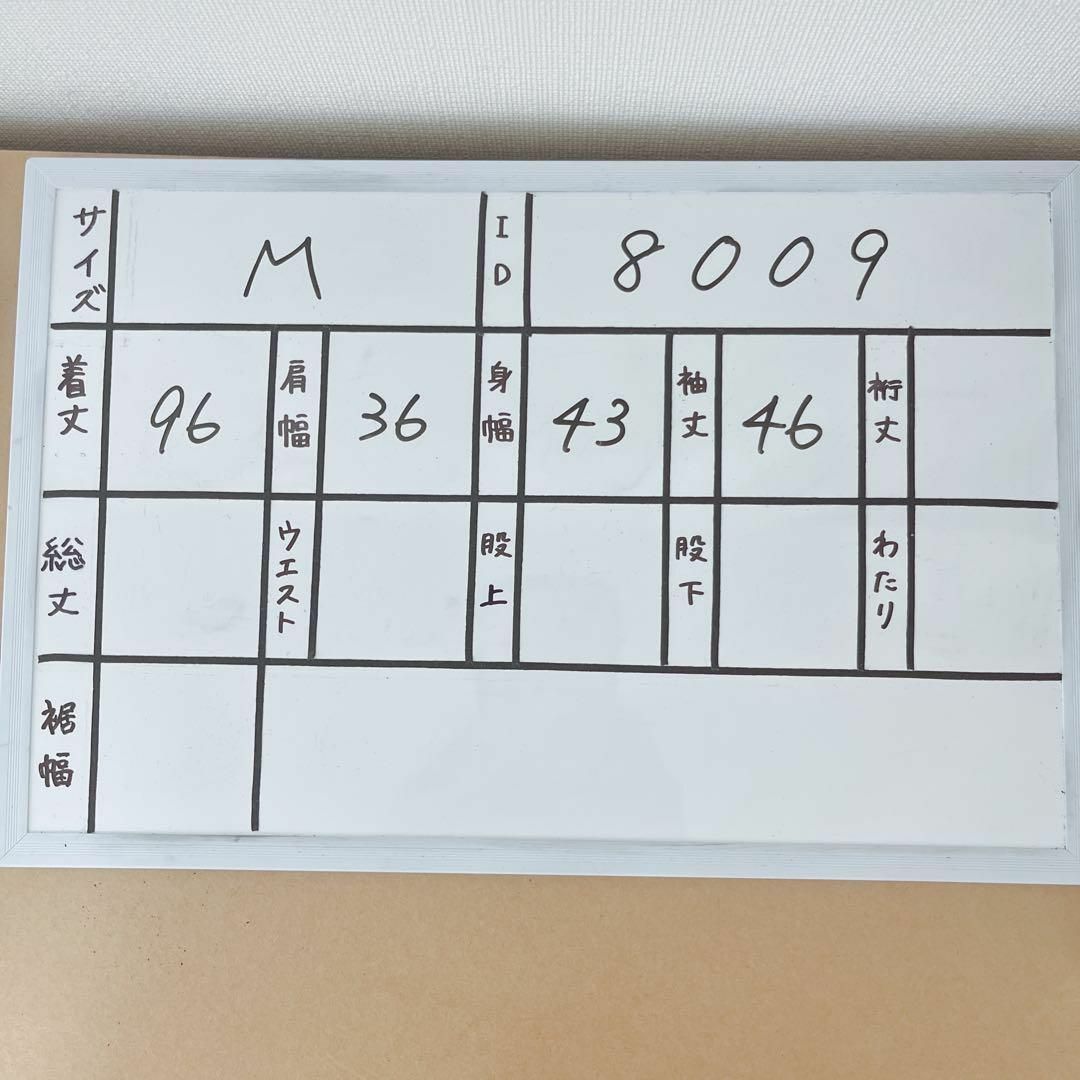 サイズ M ID 8009
着丈 96 肩幅 36 身幅 43 袖丈 46 裄丈
総丈 ウエスト 股上 股下 わたり
裾幅